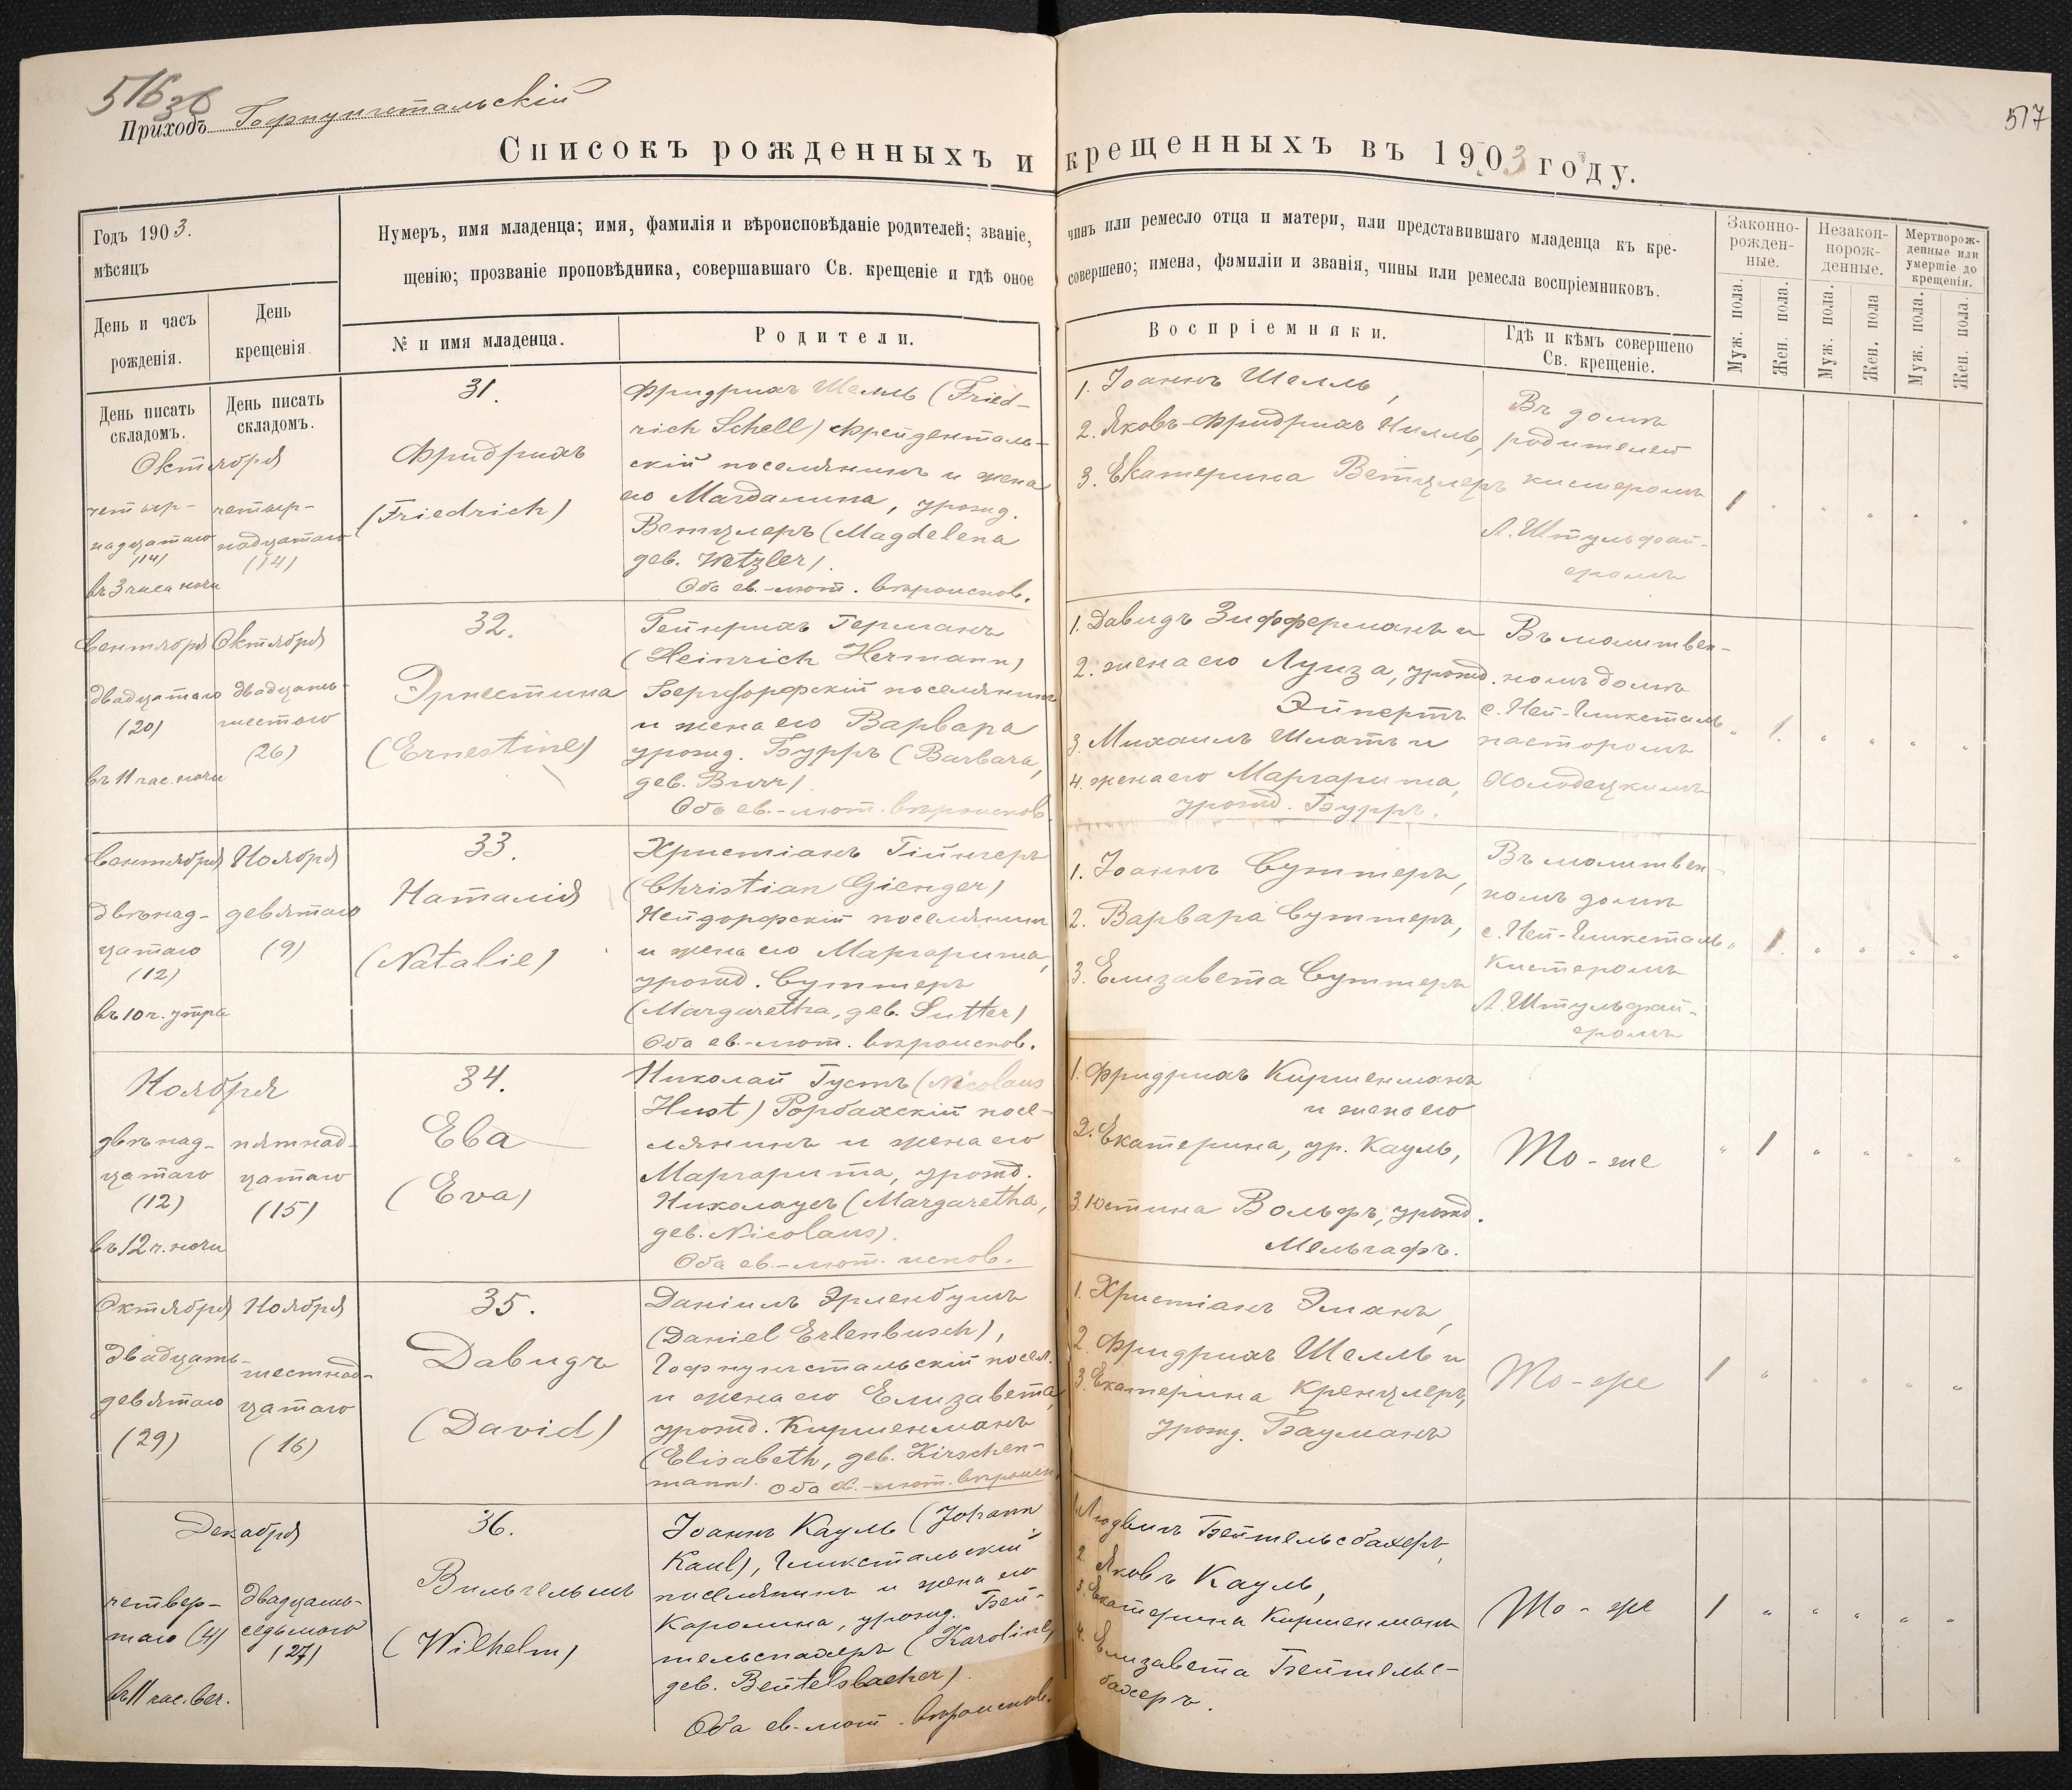 516 об
517
Приходъ Гофнунгстальскій
Списокъ рожденныхъ и крещенныхъ въ 1903 году.
Годъ 1903.
мѣсяцъ
День и часъ
рожденія.
День
крещенія.
Нумеръ, имя младенца; имя, фамилія и вѣроисповѣданіе родителей; званіе, чинъ или ремесло отца и матери, или представившаго младенца къ кре-
щенію; прозваніе проповѣдника, совершавшаго Св. крещеніе и гдѣ оное совершено; имена, фамиліи и званія, чины или ремесла воспріемниковъ.
№ и имя младенца.
Родители.
Воспріемники.
Гдѣ и кѣмъ совершено
Св. крещеніе.
Законно-
рожден-
ные.
Незакон-
норож-
денные.
Мертворож-
денные или
умершіе до
крещенія.
Муж. пола.
Жен. пола.
Муж. пола.
Жен. пола
Муж. пола.
Жен. пола.
День писать
складомъ.
День писать
складомъ.
Октября
четыр-
надцатаго
(14)
въ 3 часа ночи
четыр-
надцатаго
(14)
31.
Фридрихъ
(Friedrich)
Фридрихъ Шелль (Fried-
rich Schell) Фрейденталь-
скій поселянинъ и жена
его Магдалина, урожд.
Ветцлеръ (Magdelena
geb. Wetzler).
Оба ев.-лют. вѣроисповѣ.
1. Іоаннъ Шелль,
2. Яковъ-Фридрихъ Нилль,
3. Екатерина Ветцлеръ
Въ домѣ
родителей
кистеромъ
А. Штульфай-
еромъ
1
Сентября
двадцатаго
(20)
въ 11 час. ночи
Октября
двадцать-
шестого
(26)
32.
Эрнестина
(Ernestine)
Гейнрихъ Германъ
(Heinrich Hermann)
Бергдорфскій поселянинъ
и жена его Варвара
урожд. Бурръ (Barbara,
geb. Burr).
Оба ев.-лют. вѣроисповѣ.
1. Давидъ Зифферманъ и
2. жена его Луиза, урожд.
Эйпертъ
3. Михаилъ Шлатъ и
4. жена его Маргарита,
урожд. Бурръ.
Въ молитвен-
номъ домѣ
с. Ней-Глюксталь
пасторомъ
Холодецкимъ
1.
Сентября
двѣнад-
цатаго
(12)
въ 10 ч. утра
Ноября
девятаго
(9)
33.
Наталія
(Natalie)
Христіанъ Гійнгеръ
(Christian Gienger)
Нейдорфскій поселянинъ
и жена его Маргарита,
урожд. Суттеръ
(Margaretha, geb. Sutter)
Оба ев.-лют. вѣроисповѣ.
1. Іоаннъ Суттеръ,
2. Варвара Суттеръ,
3. Елизавета Суттеръ
Въ молитвен-
номъ домѣ
с. Ней-Глюксталь
Кистеромъ
А. Штульфай-
еромъ
1.
Ноября
двѣнад-
цатаго
(12)
въ 12 ч. ночи
пятнад-
цатаго
(15)
34.
Ева
(Eva)
Николай Густъ (Nicolaus
Hust) Рорбахскій посе-
лянинъ и жена его
Маргарита, урожд.
Николаусъ (Margaretha,
geb. Nicolaus).
Оба ев.-лют. исповѣ.
1. Фридрихъ Киршенманъ
и жена его
2. Екатерина, ур. Кауль,
3. Юстина Вольфъ, урожд.
Мельгафъ.
То-же
1
Октября
двадцать-
девятаго
(29)
Ноября
шестнад-
цатаго
(16)
35.
Давидъ
(David)
Даніилъ Эрленбушъ
(Daniel Erlenbusch),
Гофнунгстальскій посел.
и жена его Елизавета,
урожд. Киршенманъ
(Elisabeth, geb. Kirschen-
mann). Оба ев.-лют. вѣроисп.
1. Христіанъ Эманъ,
2. Фридрихъ Шелль и
3. Екатерина Кренцлеръ,
урожд. Бауманъ
То-же
1
Декабря
четвер-
таго (4)
въ 11 час. веч.
двадцать-
седьмого
(27)
36.
Вильгельмъ
(Wilhelm)
Іоаннъ Кауль (Johann
Kaul), Глюкстальскій
поселянинъ и жена его
Каролина, урожд. Бей-
тельспахеръ (Karoline,
geb. Beutelsbacher).
Оба ев-лют. вѣроисповѣ.
1. Людвигъ Бейтельсбахеръ,
2. Яковъ Кауль,
3. Екатерина Киршенманъ
4. Елизавета Бейтельс-
бахеръ.
То-же
1